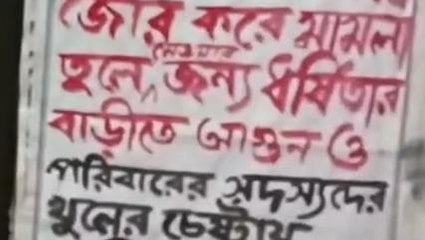 জোর করে মামলা
তুলে নেওয়ার জন্য ধর্ষিতার
বাড়ীতে আগুন ও
পরিবারের সদস্যদের
খুনের চেষ্টায়